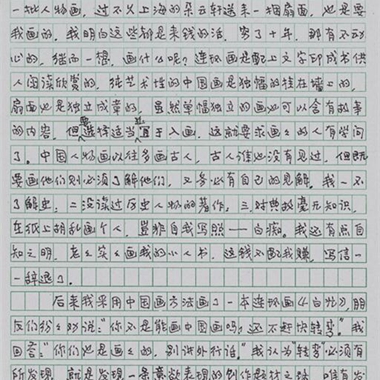 一批人物画，过不久上海的朵云轩送来一捆扇面，也是要
我画的，我明白这些都是来钱的活，穷了十年，那有不动
心的，猫而一想，画什么呢？连环画是配上文字印成书供
人阅读欣赏的，独艺术性的中国画是独幅的挂在墙上的，
扇面也是独立成章的，虽然单幅独立的画也可以含有故事
的内容，但要选择适当甚宜于入画，这就要求画画的人有学问
了。中国人物画以往多画古人，古人谁也没有见过，但既
要画他们则必须了解他们，又务必有自己的见解，我一不
了解史，二没读过历史人物的著作，三对典故毫无知识，
在纸上胡乱画个人，岂非自我写照——白痴。我还有点自
知之明，老老实实画我的小人书，这钱不配我赚，写信一
一辞退了。
后来我采用中国画方法画了一本连环画《白光》，朋
友们纷纷劝说：“你不是能画中国画吗，还不赶快转弯”，我
回答：“你们也是画画的，别讲外行话。”我认为“转弯”必须有
所发现，就是发现一条意欲表现的创作题材之路，唯有发